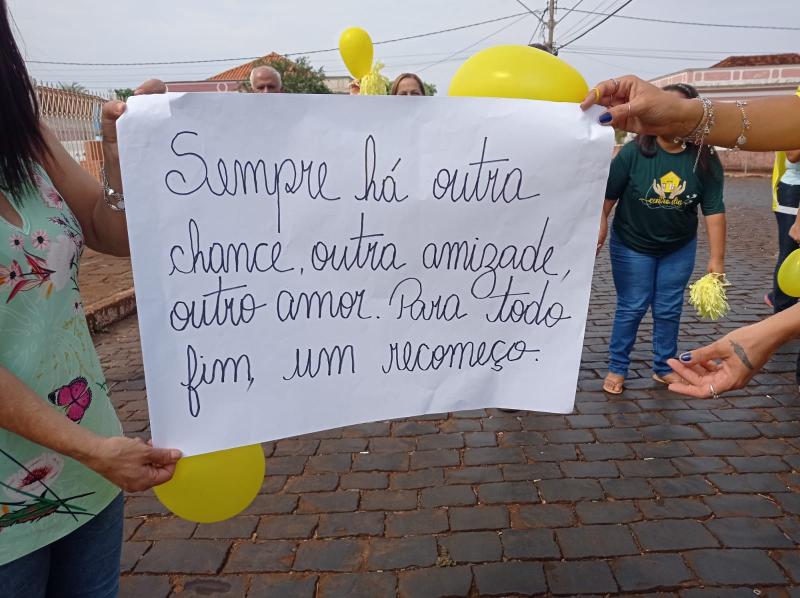 Sempre há outra
chance, outra amizade,
outro amor. Para todo
fim, um recomeço.
centro dia